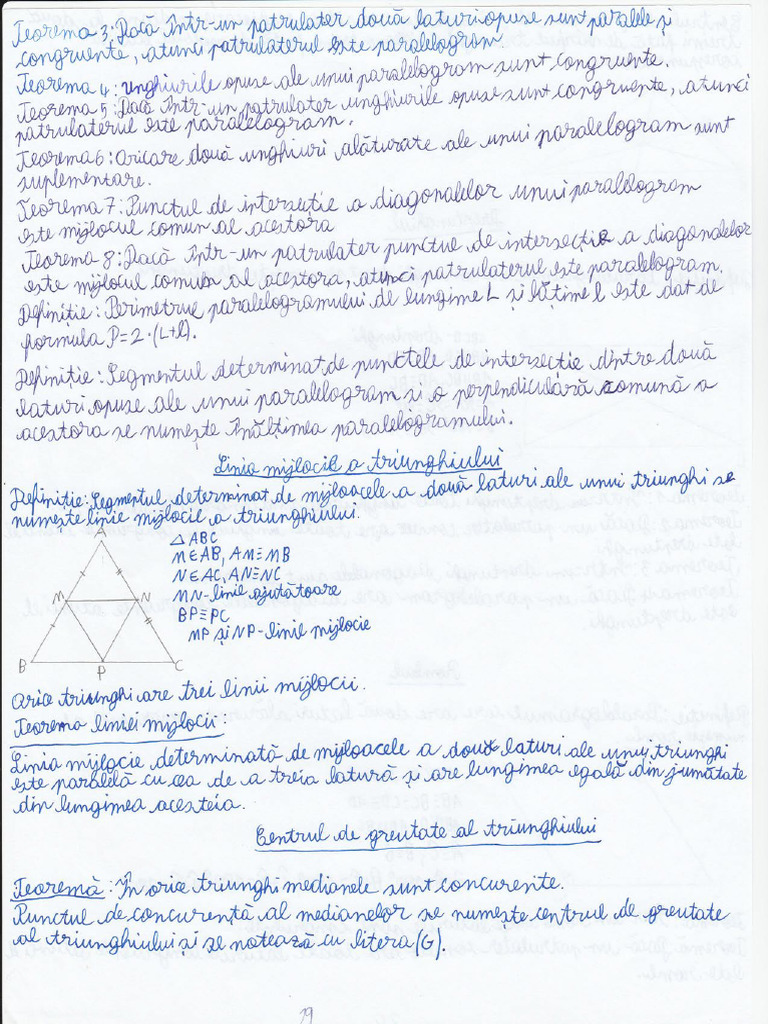 Teorema 3: Dacă într-un patrulater două laturi opuse sunt paralele și
congruente, atunci patrulaterul este paralelogram.
Teorema 4: unghiurile opuse ale unui paralelogram sunt congruente.
Teorema 5: Dacă într-un patrulater unghiurile opuse sunt congruente, atunci
patrulaterul este paralelogram.
Teorema 6: oricare două unghiuri alăturate ale unui paralelogram sunt
suplementare.
Teorema 7: Punctul de intersecție a diagonalelor unui paralelogram
este mijlocul comun al acestora
Teorema 8: Dacă într-un patrulater punctul de intersecție a diagonalelor
este mijlocul comun al acestora, atunci patrulaterul este paralelogram.
Definiție: Perimetrul paralelogramului de lungime L și lățime l este dat de
formula P=2·(L+l).
Definiție: Segmentul determinat de punctele de intersecție dintre două
laturi opuse ale unui paralelogram și o perpendiculară comună a
acestora se numește înălțimea paralelogramului.
Linia mijlocie a triunghiului
Definiție: Segmentul determinat de mijloacele a două laturi ale unui triunghi se
numește linie mijlocie a triunghiului.
A
△ABC
M∈AB, AM≡MB
N∈AC, AN≡NC
M N
MN-linie ajutătoare
BP≡PC
MP și NP-linii mijlocie
B P C
Orice triunghi are trei linii mijlocii.
Teorema liniei mijlocii:
Linia mijlocie determinată de mijloacele a două laturi ale unui triunghi
este paralelă cu cea de a treia latură și are lungimea egală din jumătate
din lungimea acesteia.
Centrul de greutate al triunghiului
Teoremă: În orice triunghi medianele sunt concurente.
Punctul de concurență al medianelor se numește centrul de greutate
al triunghiului și se notează cu litera (G).